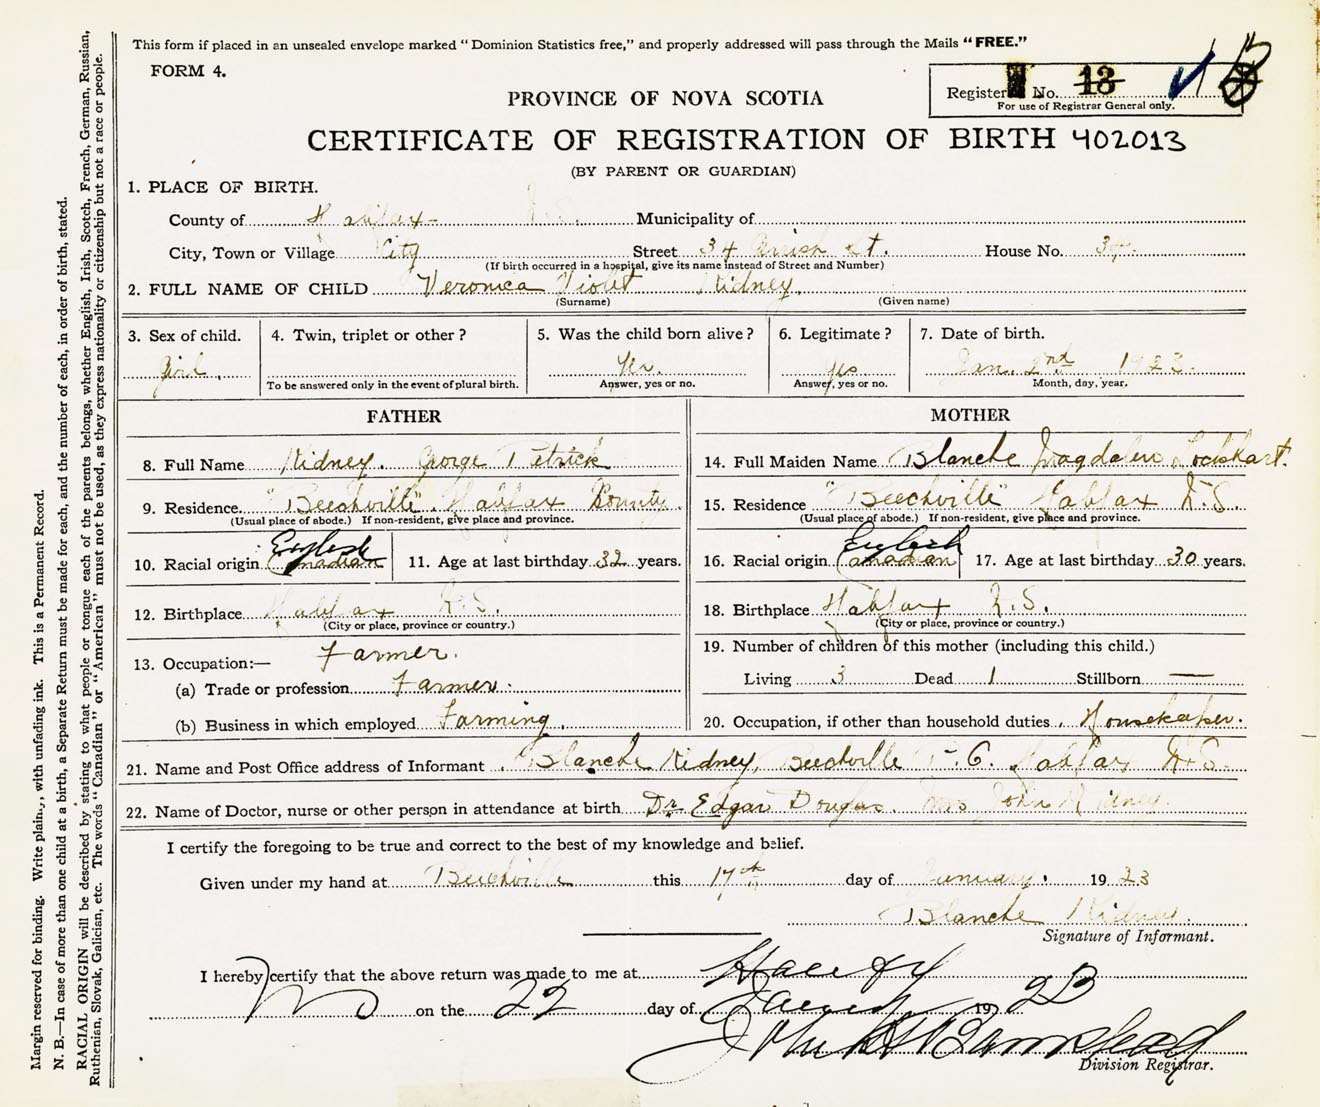 This form if placed in an unsealed envelope marked "Dominion Statistics free," and properly addressed will pass through the Mails "FREE."
FORM 4.
Register No. 13
For use of Registrar General only.
PROVINCE OF NOVA SCOTIA
CERTIFICATE OF REGISTRATION OF BIRTH 402013
(BY PARENT OR GUARDIAN)
1. PLACE OF BIRTH.
County of Halifax N.S. Municipality of
City, Town or Village City Street 34 St. House No. 34
(If birth occurred in a hospital, give its name instead of Street and Number)
2. FULL NAME OF CHILD Veronica Violet Kidney.
(Surname) (Given name)
3. Sex of child. 4. Twin, triplet or other? 5. Was the child born alive? 6. Legitimate? 7. Date of birth.
Girl. Yes. Yes Jan. 2nd 1923.
To be answered only in the event of plural birth. Answer, yes or no. Answer, yes or no. Month, day, year.
FATHER
8. Full Name Kidney. George Patrick
9. Residence "Beechville". Halifax County.
(Usual place of abode.) If non-resident, give place and province.
10. Racial origin English Canadian 11. Age at last birthday 32 years.
12. Birthplace Halifax N.S.
(City or place, province or country.)
13. Occupation:— Farmer.
(a) Trade or profession Farmer.
(b) Business in which employed Farming.
MOTHER
14. Full Maiden Name Blanche Magdalen Lockhart.
15. Residence "Beechville" Halifax N.S.
(Usual place of abode.) If non-resident, give place and province.
16. Racial origin English Canadian 17. Age at last birthday 30 years.
18. Birthplace Halifax N.S.
(City or place, province or country.)
19. Number of children of this mother (including this child.)
Living 3 Dead 1 Stillborn —
20. Occupation, if other than household duties Housekeeper.
21. Name and Post Office address of Informant Blanche Kidney, Beechville P.O. Halifax N.S.
22. Name of Doctor, nurse or other person in attendance at birth Dr. Edgar Douglas. Mrs John Kidney.
I certify the foregoing to be true and correct to the best of my knowledge and belief.
Given under my hand at Beechville this 17th day of January. 1923
Blanche Kidney.
Signature of Informant.
I hereby certify that the above return was made to me at
on the 22 day of 1923
Division Registrar.
Margin reserved for binding. Write plainly, with unfading ink. This is a Permanent Record.
N. B.—In case of more than one child at a birth, a Separate Return must be made for each, and the number of each, in order of birth, stated.
RACIAL ORIGIN will be described by stating to what people or tongue each of the parents belongs, whether English, Irish, Scotch, French, German, Russian,
Ruthenian, Slovak, Galician, etc. The words "Canadian" or "American" must not be used, as they express nationality or citizenship but not a race or people.